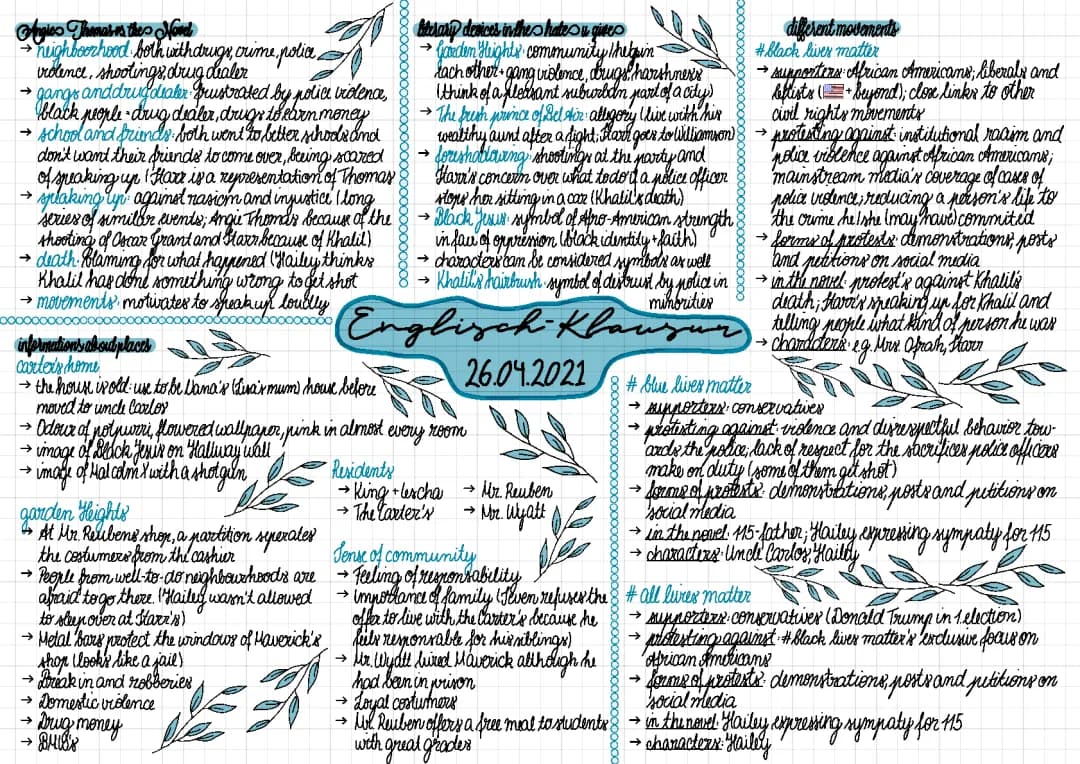 Angie Thomas vs the Novel
→ neighboorhood: both with drugs, crime, police
violence, shootings, drug dealer
→ gangs and drug dealer: frustrated by police violence,
black people = drug dealer, drugs to earn money
→ school and friends: both went to better schools and
don't want their friends to come over, being scared
of speaking up (Starr is a representation of Thomas)
→ speaking up: against rasicm and injustice (long
series of similar events; Angie Thomas because of the
shooting of Oscar Grant and Starr because of Khalil)
→ death: blaming for what happened (Hailey thinks
Khalil has done something wrong to get shot
→ movements: motivates to speak up loudly
literary devices in the hate u give
→ Garden Heights: community (help in
each other + gang violence, drugs, harshness
(think of a pleasant suburban part of a city)
→ The fresh prince of Bel Air: allegory (live with his
wealthy aunt after a fight; Starr goes to Williamson)
→ foreshadowing: shootings at the party and
Starr's concern over what to do if a police officer
stops her sitting in a car (Khalil's death)
→ Black Jesus: symbol of Afro-American strength
in face of oppression (black identity + faith)
→ characters can be considered symbols as well
→ Khalil's hairbrush: symbol of distrust by police in
minorities
different movements
#black lives matter
→ supporters: African Americans; liberals and
leftists (🇺🇸 + beyond); close links to other
civil rights movements
→ protesting against: institutional racism and
police violence against African Americans;
mainstream media's coverage of cases of
police violence; reducing a person's life to
the crime he/she (may have) commited
→ forms of protests: demonstrations, posts
and petitions on social media
→ in the novel: protest's against Khalil's
death; Starr's speaking up for Khalil and
telling people what kind of person he was
→ characters: e.g. Mrs Ofrah, Starr
Englisch-Klausur
26.04.2021
informations about places
Carter's home
→ the house is old: use to be Nana's (Lisa's mum) house before
moved to uncle Carlos
→ Odour of potpurri, flowered wallpaper, pink in almost every room
→ image of Black Jesus on Hallway wall
→ image of Malcolm X with a shotgun
garden Heights
→ At Mr. Reubens shop, a partition seperates
the costumers from the cashier
→ People from well-to-do neighbourhoods are
afraid to go there (Hailey wasn't allowed
to sleep over at Starr's)
→ Metal bars protect the windows of Maverick's
shop (looks like a jail)
→ Break in and robberies
→ Domestic violence
→ Drug money
→ BMWs
Residents
→ King + Iescha → Mr. Reuben
→ The Carter's → Mr. Wyatt
Sense of community
→ Feeling of responsability
→ importance of family (Seven refuses the
offer to live with the Carter's because he
feels responsable for his siblings)
→ Mr. Wyatt hired Maverick although he
had been in prison
→ Loyal costumers
→ Mr. Reuben offers a free meal to students
with great grades
# blue lives matter
→ supporters: conservatives
→ protesting against: violence and disrespectful behavior tow-
ards the police; lack of respect for the sacrifices police officers
make on duty (some of them get shot)
→ forms of protests: demonstrations, posts and petitions on
social media
→ in the novel: 115-father; Hailey expressing sympaty for 115
→ characters: Uncle Carlos, Hailey
# all lives matter
→ supporters: conservatives (Donald Trump in 1. election)
→ protesting against: #black lives matter's exclusive focus on
African Americans
→ forms of protests: demonstrations, posts and petitions on
social media
→ in the novel: Hailey expressing sympaty for 115
→ characters: Hailey